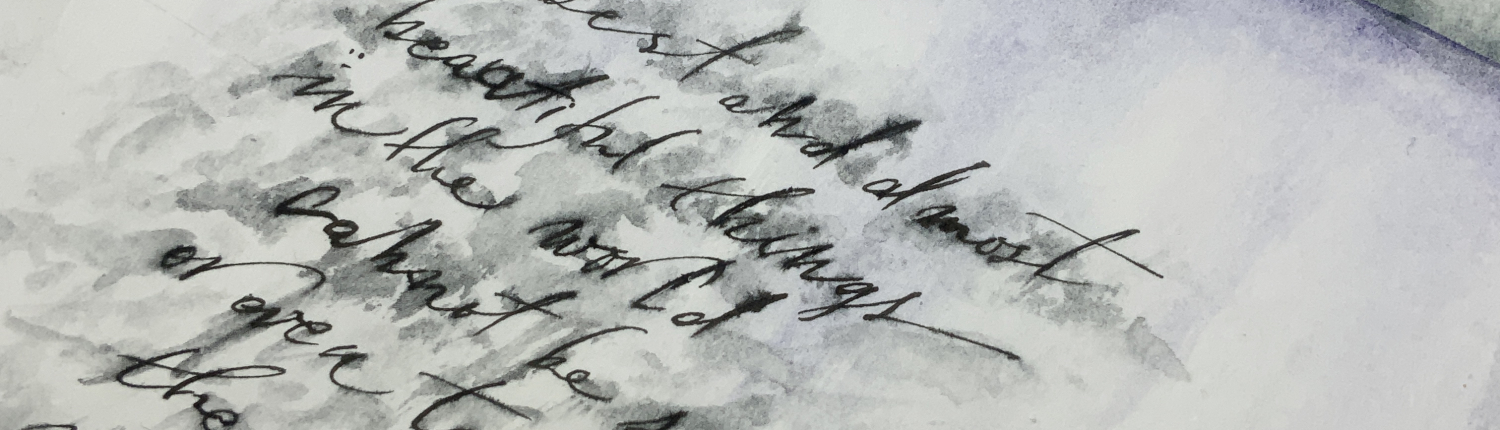 est and almost
beautiful things
in the world
cannot be
or even t
the